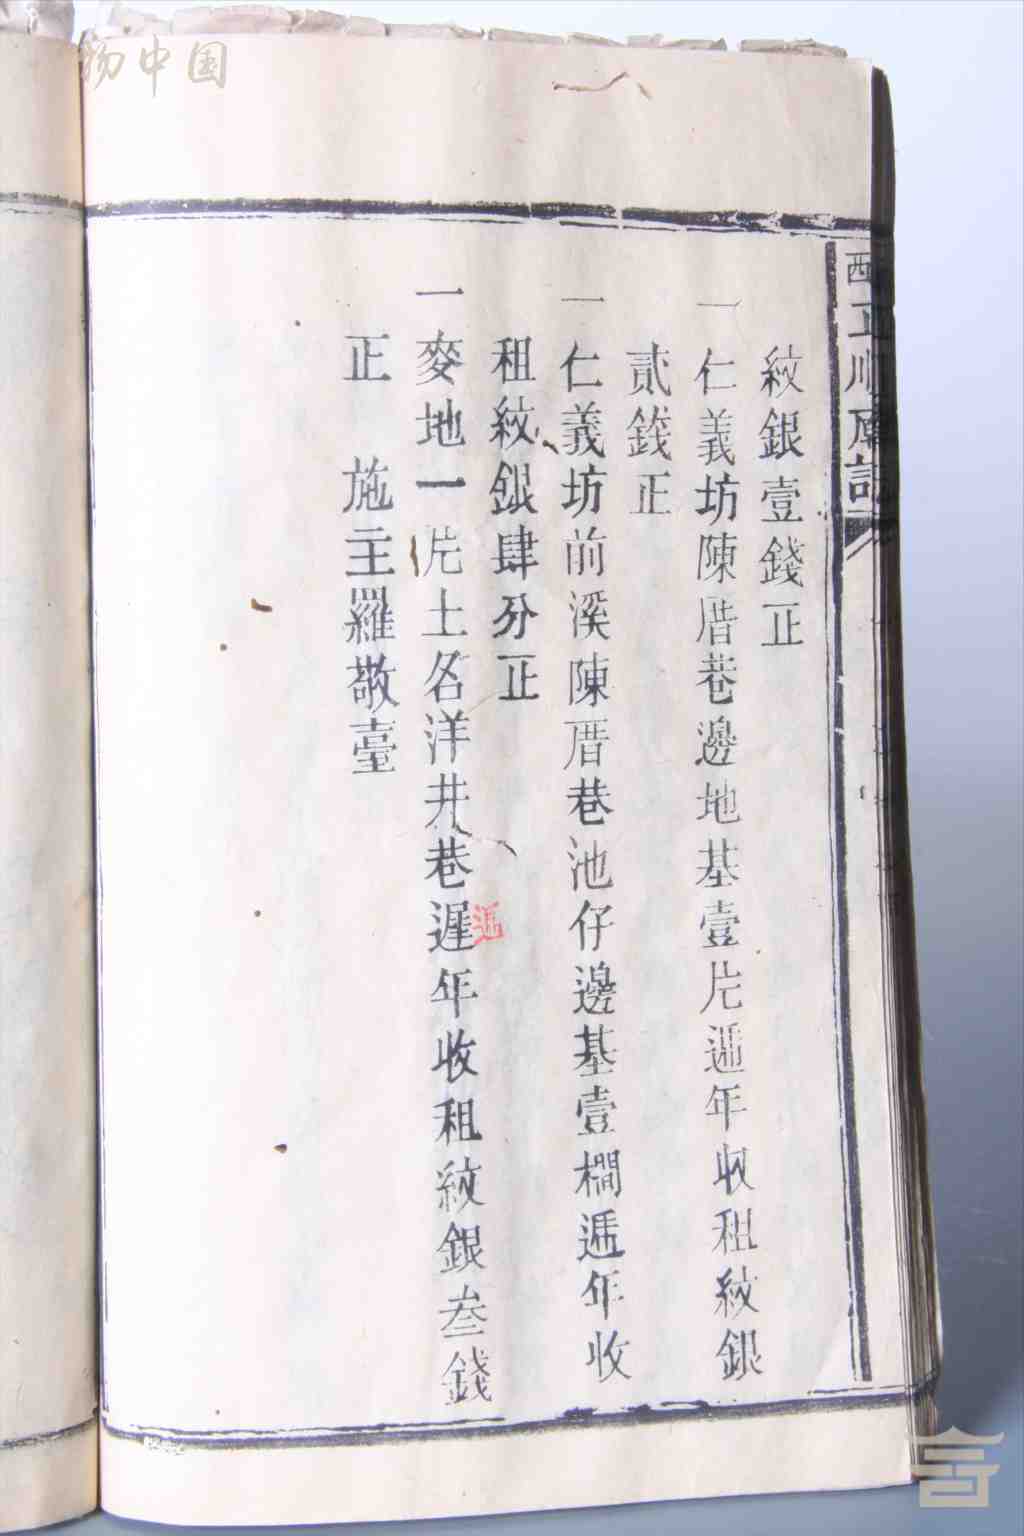 紋銀壹錢正
一仁義坊陳厝巷邊地基壹片遞年收租紋銀
貳錢正
一仁義坊前溪陳厝巷池仔邊基壹櫊遞年收
租紋銀肆分正
一麥地一片土名洋井巷遲年收租紋銀叁錢
正 施主羅敬臺
中国